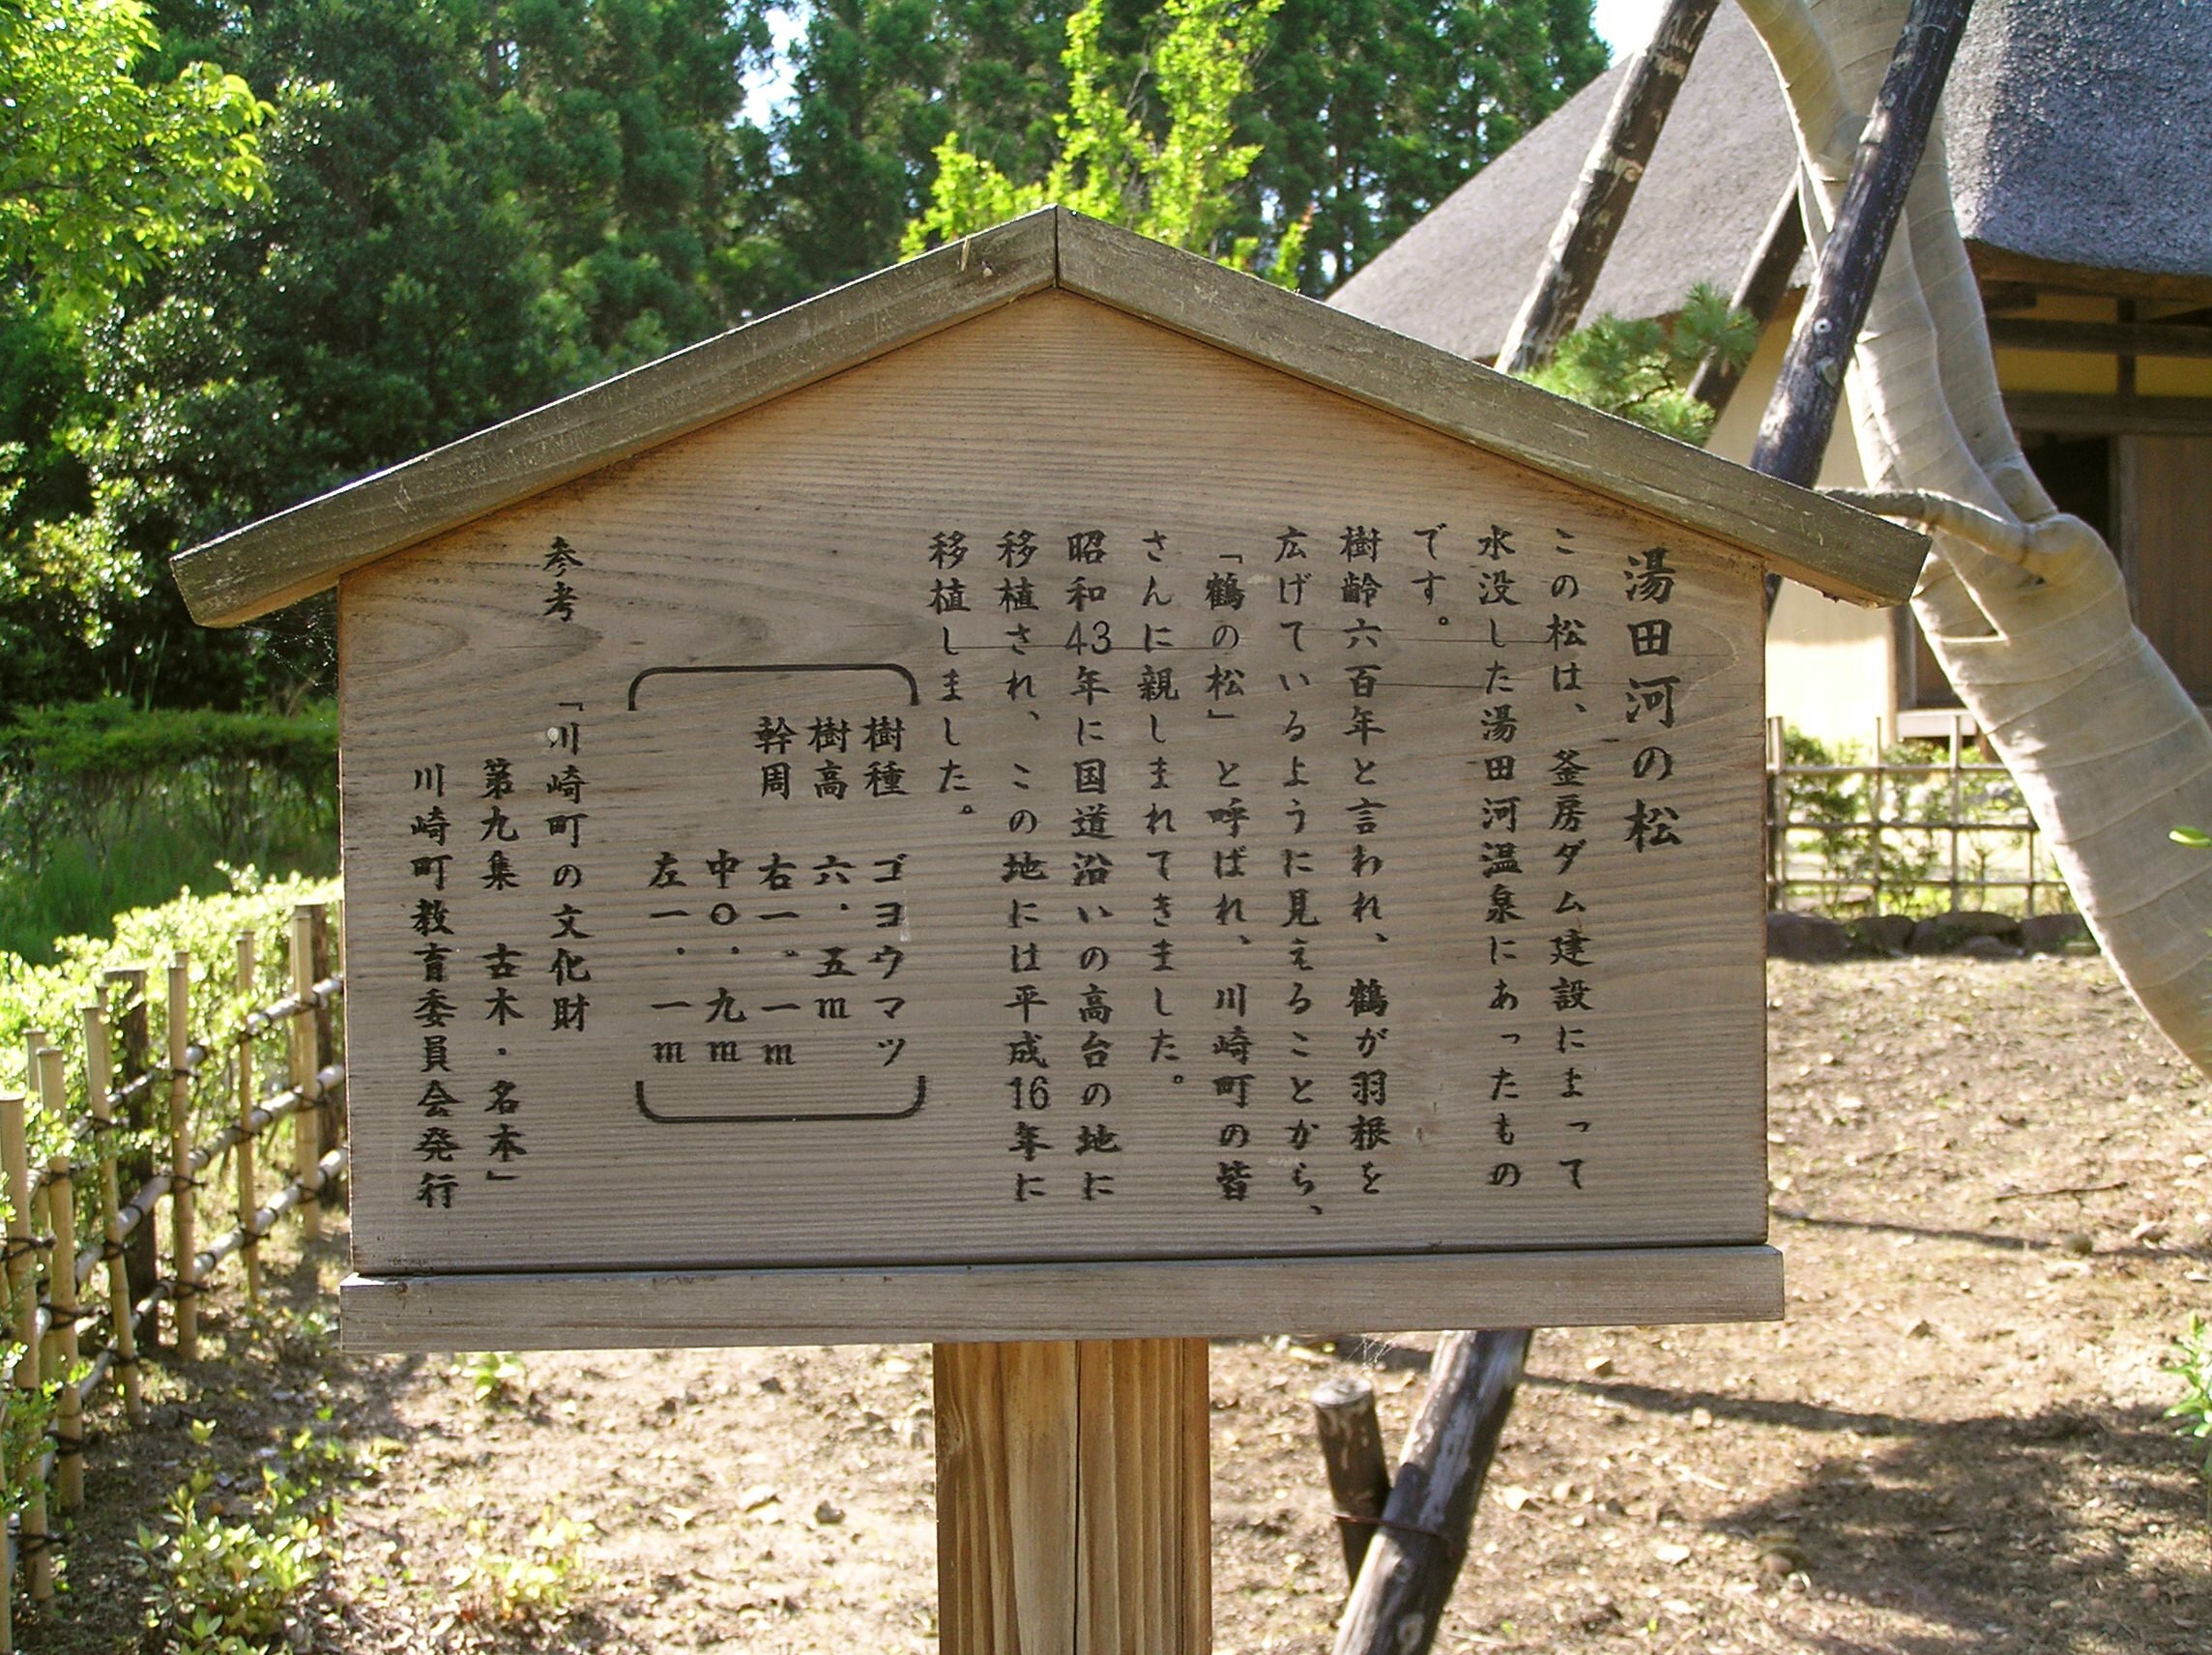 湯田河の松
この松は、釜房ダム建設によって
水没した湯田河温泉にあったもの
です。
樹齢六百年と言われ、鶴が羽根を
広げているように見えることから、
「鶴の松」と呼ばれ、川崎町の皆
さんに親しまれてきました。
昭和43年に国道沿いの高台の地に
移植され、この地には平成16年に
移植しました。
樹種 ゴヨウマツ
樹高 六．五m
幹周 右一。一m
中〇．九m
左一．一m
参考 「川崎町の文化財
第九集 古木・名木」
川崎町教育委員会発行